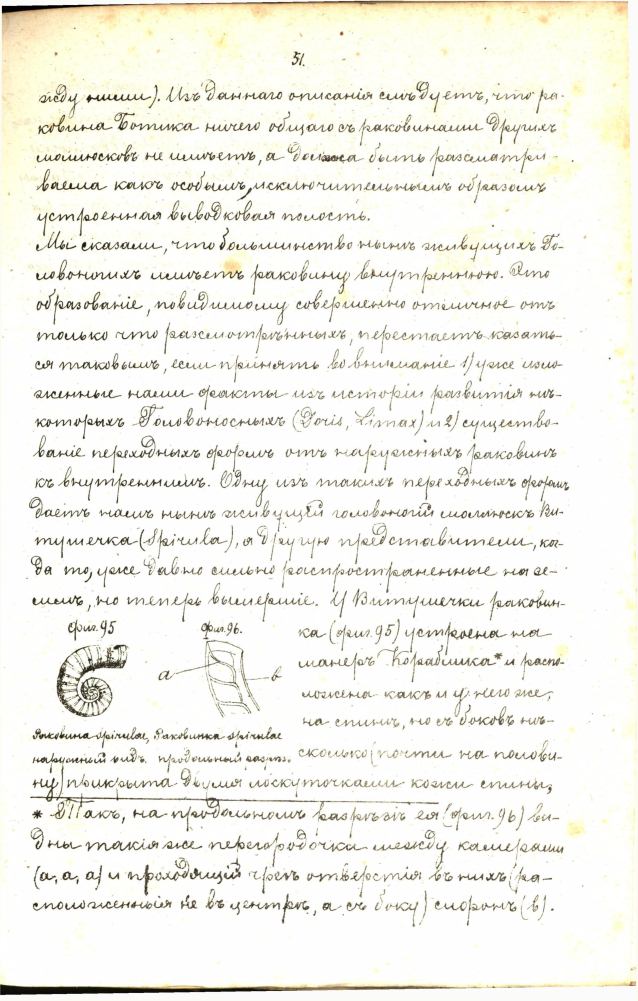 51.
жду ними). Изъ даннаго описанія слѣдуетъ, что ра-
ковина Ботика ничего общаго съ раковинами другихъ
моллюсковъ не имѣетъ, а должна быть разсматри-
ваема какъ особымъ, исключительнымъ образомъ
устроенная выводковая полость.
Мы сказали, что большинство нынѣ живущихъ Го-
ловоногихъ имѣетъ раковину внутреннюю. Это
образованіе, повидимому совершенно отличное отъ
только что разсмотрѣнныхъ, перестаетъ казать-
ся таковымъ, если принять во вниманіе 1) уже изло-
женные нами факты изъ исторіи развитія нѣ-
которыхъ Головоносныхъ (Doris, Limax) и 2) существо-
ваніе переходныхъ формъ отъ наружныхъ раковинъ
къ внутреннимъ. Одну изъ такихъ переходныхъ формъ
даетъ намъ нынѣ живущій головоногій моллюскъ Ви-
тушечка (Spirula), а другую представители, ког-
да то, уже давно сильно распространенные на зе-
млѣ, но теперь вымершіе. У Витушечки раковин-
фиг. 95 фиг. 96.
a в
Раковина spirulae, Раковинка spirulae
наружный видъ. продольный разрѣз.
ка (фиг. 95) устроена на
манеръ Кораблика* и распо-
ложена какъ и у него же,
на спинѣ, но съ боковъ нѣ-
сколько (почти на полови-
ну) прикрыта двумя лоскуточками кожи спины,
* Такъ, на продольномъ разрѣзѣ ея (фиг. 96) ви-
дны такія же перегородочки между камерами
(а, а, а) и проходящій чрезъ отверстія въ нихъ (ра-
сположенныя не въ центрѣ, а съ боку) сифонъ (в).